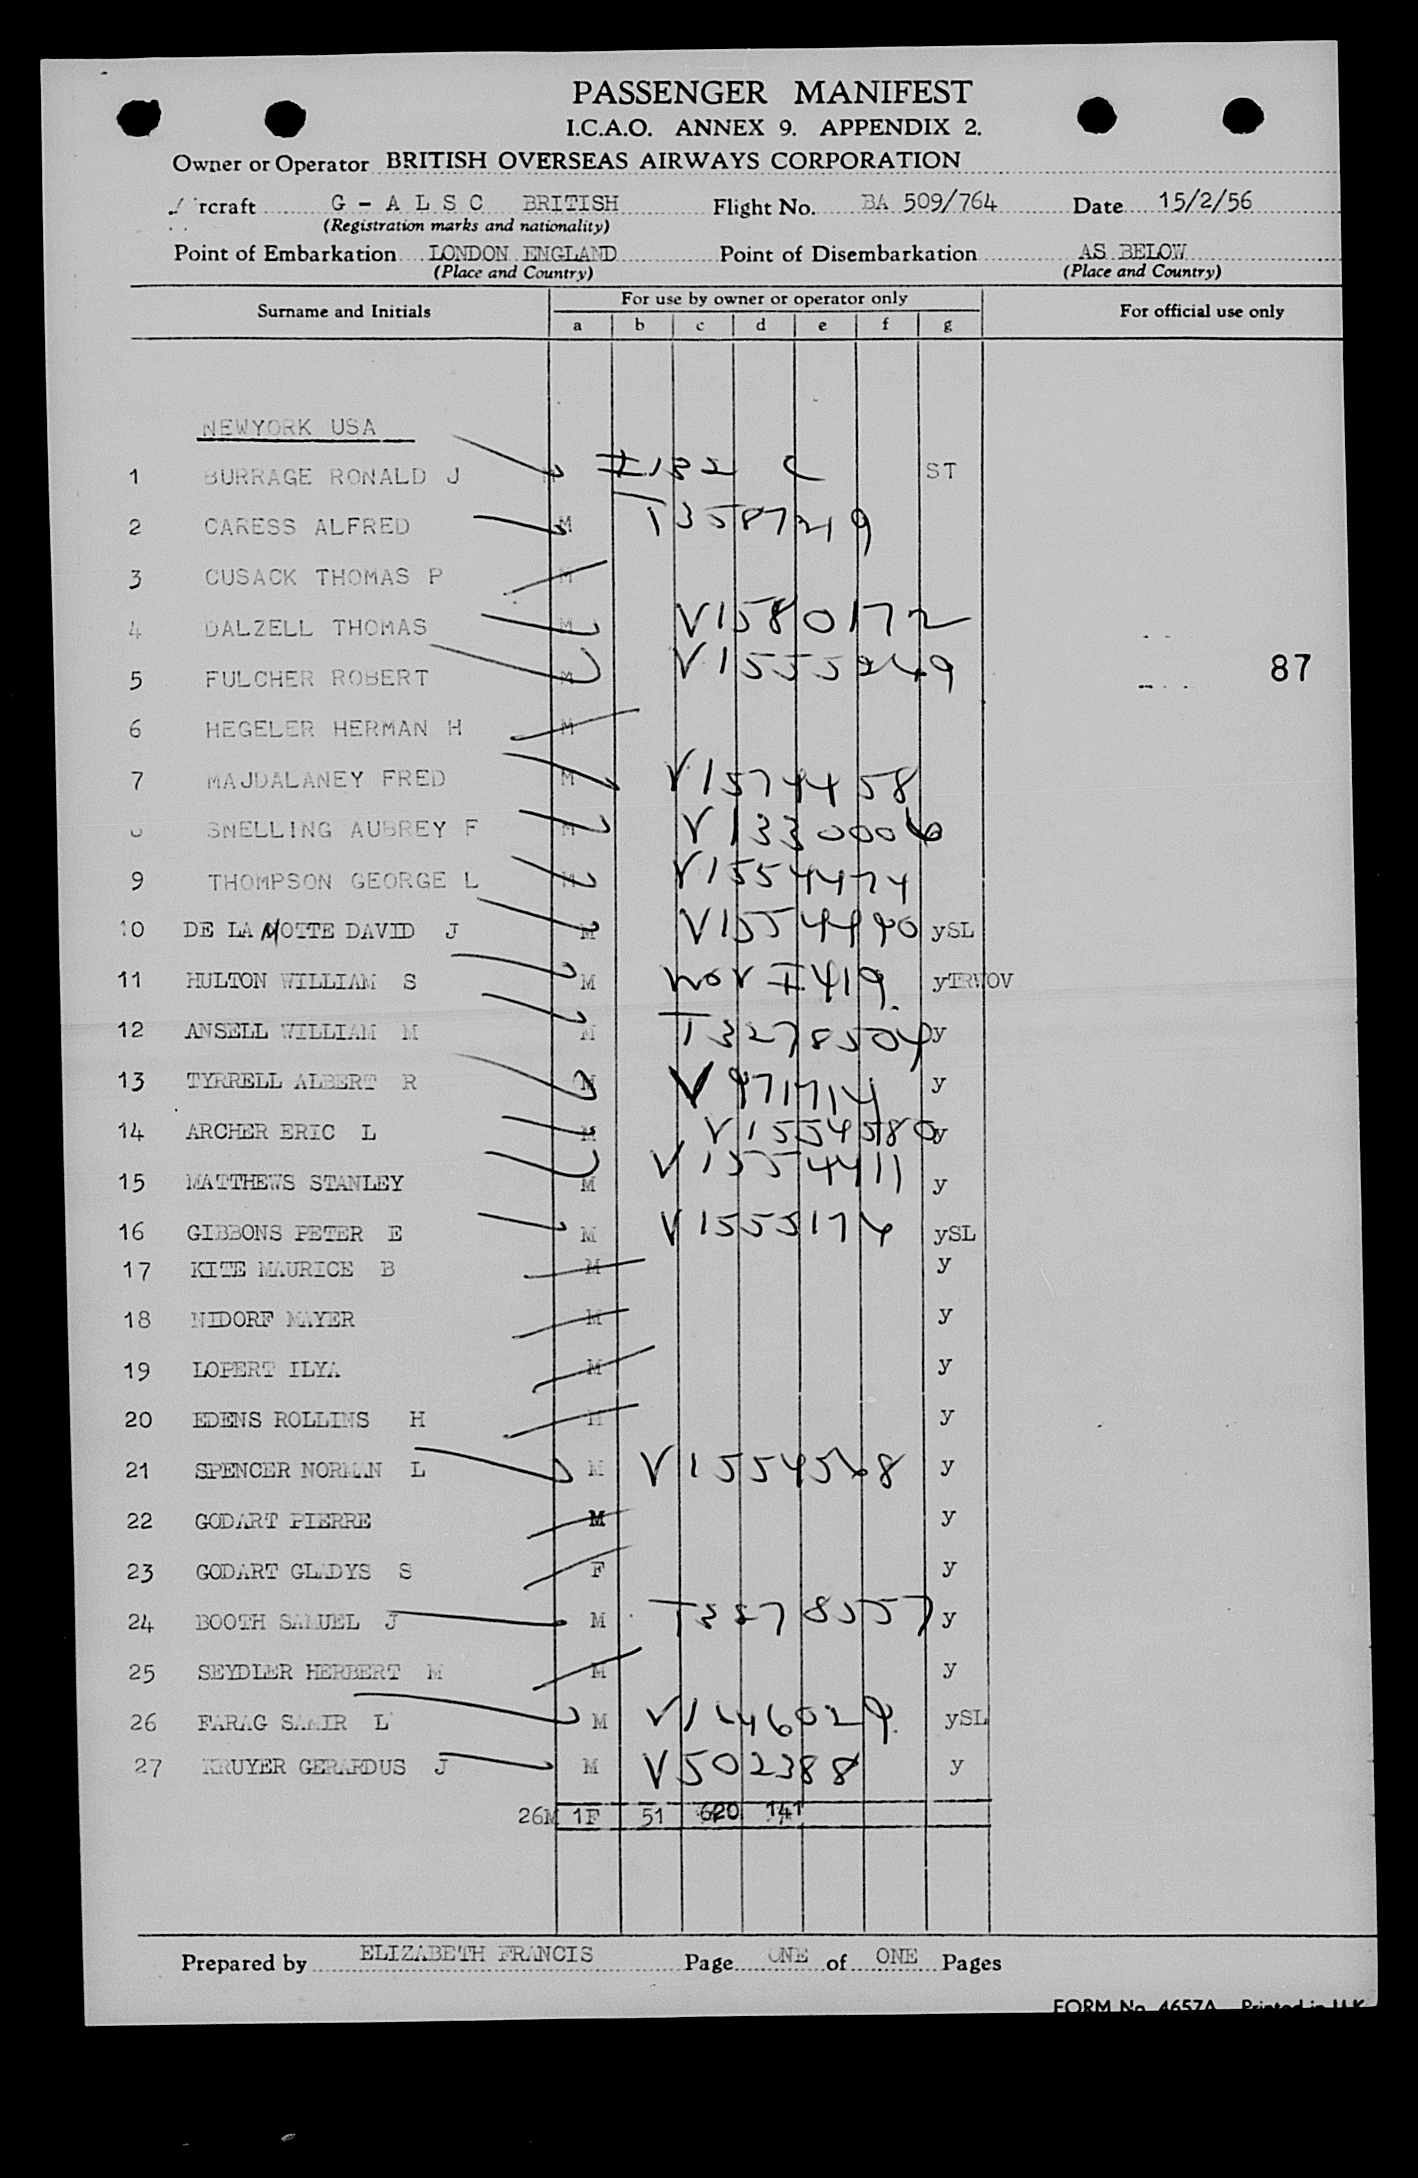 PASSENGER MANIFEST
I.C.A.O. ANNEX 9. APPENDIX 2.
Owner or Operator BRITISH OVERSEAS AIRWAYS CORPORATION
rcraft G - A L S C BRITISH Flight No. BA 509/764 Date 15/2/56
(Registration marks and nationality)
Point of Embarkation LONDON ENGLAND Point of Disembarkation AS BELOW
(Place and Country) (Place and Country)
For use by owner or operator only
Surname and Initials For official use only
a b c d e f g
NEWYORK USA
1 BURRAGE RONALD J ST
2 CARESS ALFRED M T3587219
3 CUSACK THOMAS P M
4 DALZELL THOMAS M V1580172
5 FULCHER ROBERT M V1555249 87
6 HEGELER HERMAN H M
7 MAJDALANEY FRED M V1574458
SNELLING AUBREY F M V1330006
9 THOMPSON GEORGE L M V1554474
10 DE LA MOTTE DAVID J M V1554490 ySL
11 HULTON WILLIAM S M I419 yTRWOV
12 ANSELL WILLIAM M M T3278504 y
13 TYRRELL ALBERT R M V971714 y
14 ARCHER ERIC L M V1554580 y
15 MATTHEWS STANLEY M V1554411 y
16 GIBBONS PETER E M V1555174 ySL
17 KITE MAURICE B M y
18 NIDORF MAYER M y
19 LOPERT ILYA M y
20 EDENS ROLLINS H M y
21 SPENCER NORMAN L M V1554568 y
22 GODART PIERRE M y
23 GODART GLADYS S F y
24 BOOTH SAMUEL J M T3378557 y
25 SEYDLER HERBERT M M y
26 FARAG SAMIR L M ySL
27 KRUYER GERARDUS J M V502388 y
26M 1F 51 620 141
Prepared by ELIZABETH FRANCIS Page ONE of ONE Pages
FORM No. 4657A Printed in U.K.